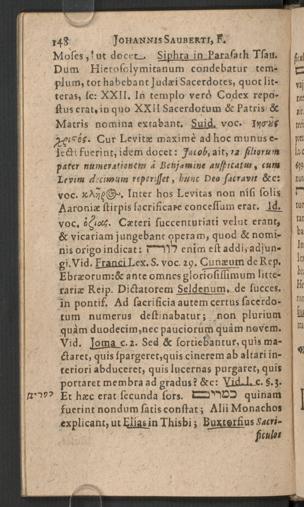 148 JOHANNIS SAUBERTI, F.
Moses, ut docet Siphra in Parasach Tsau.
Dum Hierosolymitanum condebatur tem-
plum, tot habebant Judæi Sacerdotes, quot lit-
teras, sc: XXII. In templo verò Codex repo-
stus erat, in quo XXII Sacerdotum & Patris &
Matris nomina extabant. Suid. voc. Ἰησοῦς
χριστός. Cur Levitæ maximè ad hoc munus e-
lecti fuerint, idem docet: Jacob, ait, 12 filiorum
pater numerationem à Benjamine auspicatus, cum
Levim decimum reperisset, hunc Deo sacravit &c:
voc. κλῆρος. Inter hos Levitas non nisi solis
Aaroniæ stirpis sacrificare concessum erat. Id.
voc. ὀζίας. Cæteri succenturiati velut erant,
& vicariam jungebant operam, quod & nomi-
nis origo indicat: לוה enim est addi, adjun-
gi. Vid. Franci Lex. S. voc. 29. Cunæum de Rep.
Ebræorum: & ante omnes gloriosissimum litte-
rariæ Reip. Dictatorem Seldenum, de succes.
in pontif. Ad sacrificia autem certus sacerdo-
tum numerus destinabatur; non plurium
quàm duodecim, nec pauciorum quàm novem.
Vid. Joma c. 2. Sed & sortiebantur, quis ma-
ctaret, quis spargeret, quis cinerem ab altari in-
teriori abduceret, quis lucernas purgaret, quis
portaret membra ad gradus? &c: Vid. l. c. §. 3.
Et hæc erat secunda sors. כמרים quinam
fuerint nondum satis constat; Alii Monachos
explicant, ut Elias in Thisbi; Buxtorfius Sacri-
ficulos